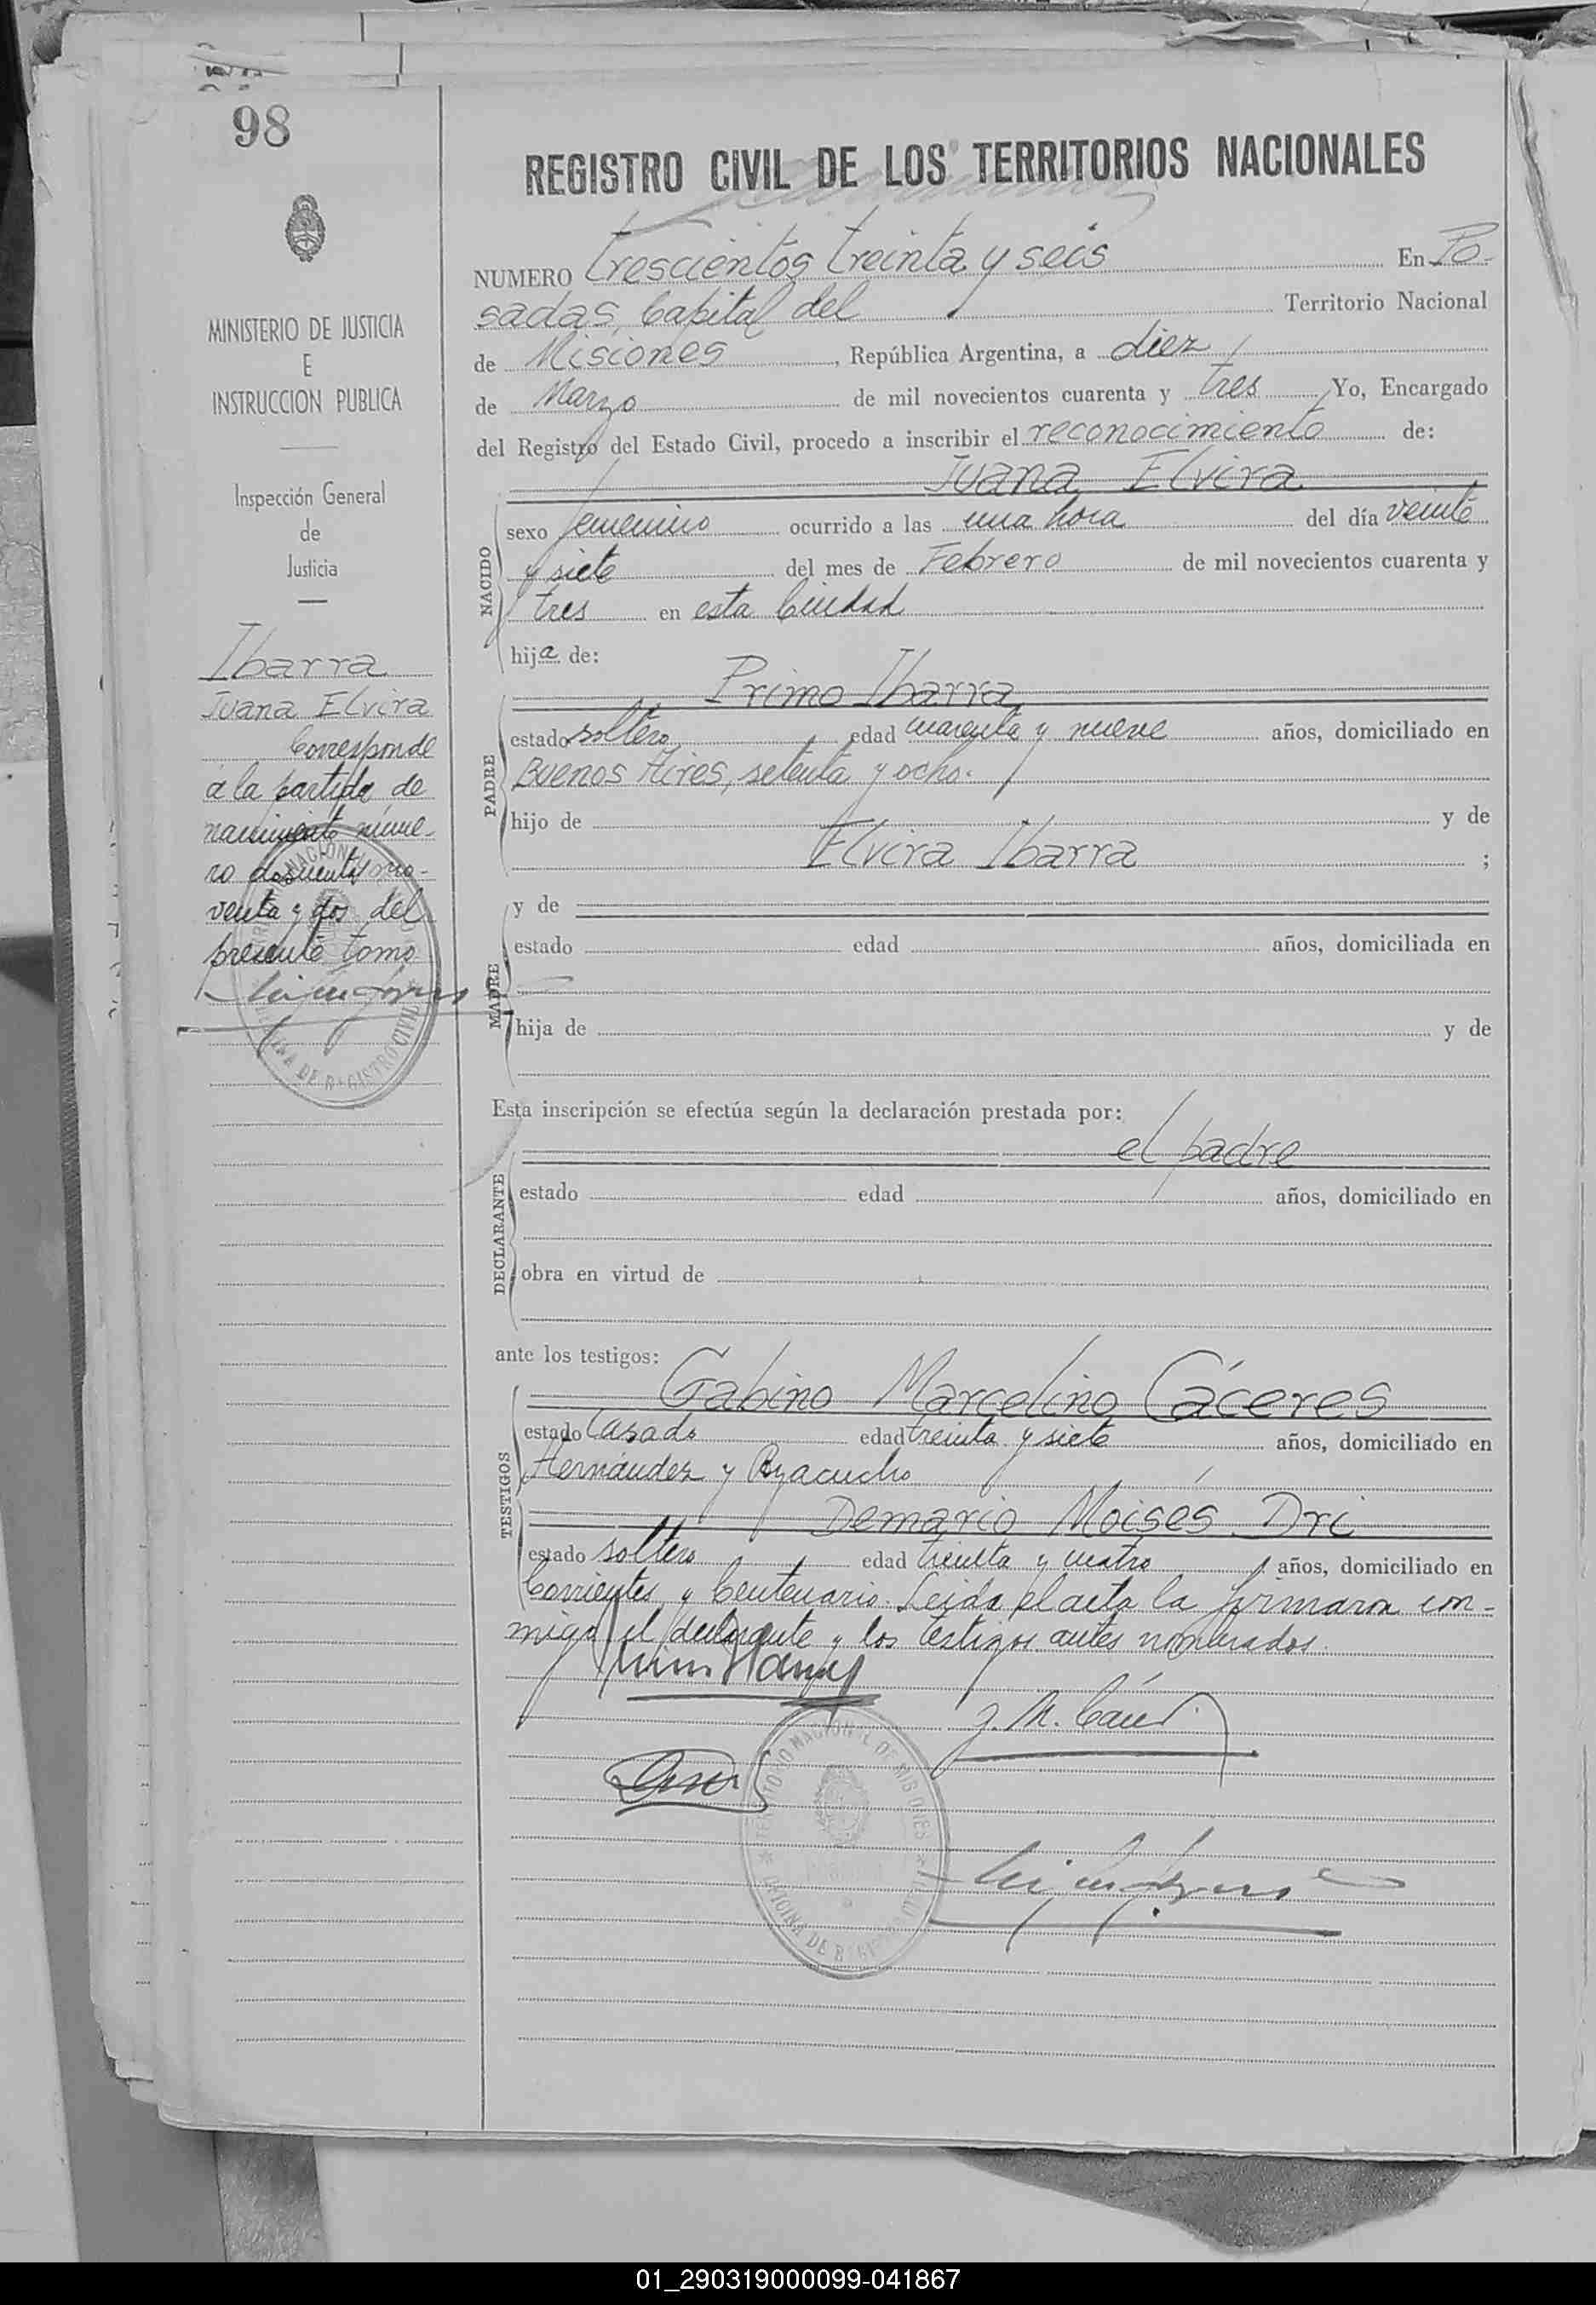 98
REGISTRO CIVIL DE LOS TERRITORIOS NACIONALES
NUMERO trescientos treinta y seis En Po-
sadas, Capital del Territorio Nacional
de Misiones, República Argentina, a diez
de Marzo de mil novecientos cuarenta y tres Yo, Encargado
del Registro del Estado Civil, procedo a inscribir el reconocimiento de:
Juana Elvira
sexo femenino ocurrido a las una hora del día veinte
y siete del mes de Febrero de mil novecientos cuarenta y
tres en esta Ciudad
NACIDO
hija de:
Primo Ibarra
estado soltero edad cuarenta y nueve años, domiciliado en
Buenos Aires, setenta y ocho.
PADRE
hijo de y de
Elvira Ibarra ;
y de
estado edad años, domiciliada en
MADRE
hija de y de
Esta inscripción se efectúa según la declaración prestada por:
el padre
estado edad años, domiciliado en
DECLARANTE
obra en virtud de
ante los testigos:
Gabino Marcelino Cáceres
estado Casado edad treinta y siete años, domiciliado en
Hernandez y Ayacucho
TESTIGOS
Demario Moisés Dri
estado soltero edad treinta y cuatro años, domiciliado en
Corrientes y Centenario. Leida el acta la firmaron con-
migo el declarante y los testigos antes nombrados.
MINISTERIO DE JUSTICIA
E
INSTRUCCION PUBLICA
Inspección General
de
Justicia
Ibarra
Juana Elvira
Corresponde
a la partida de
nacimiento nume-
ro doscientos no-
venta y dos del
presente tomo
OFICINA DE REGISTRO CIVIL
TERRITORIO NACIONAL DE MISIONES
01_290319000099-041867